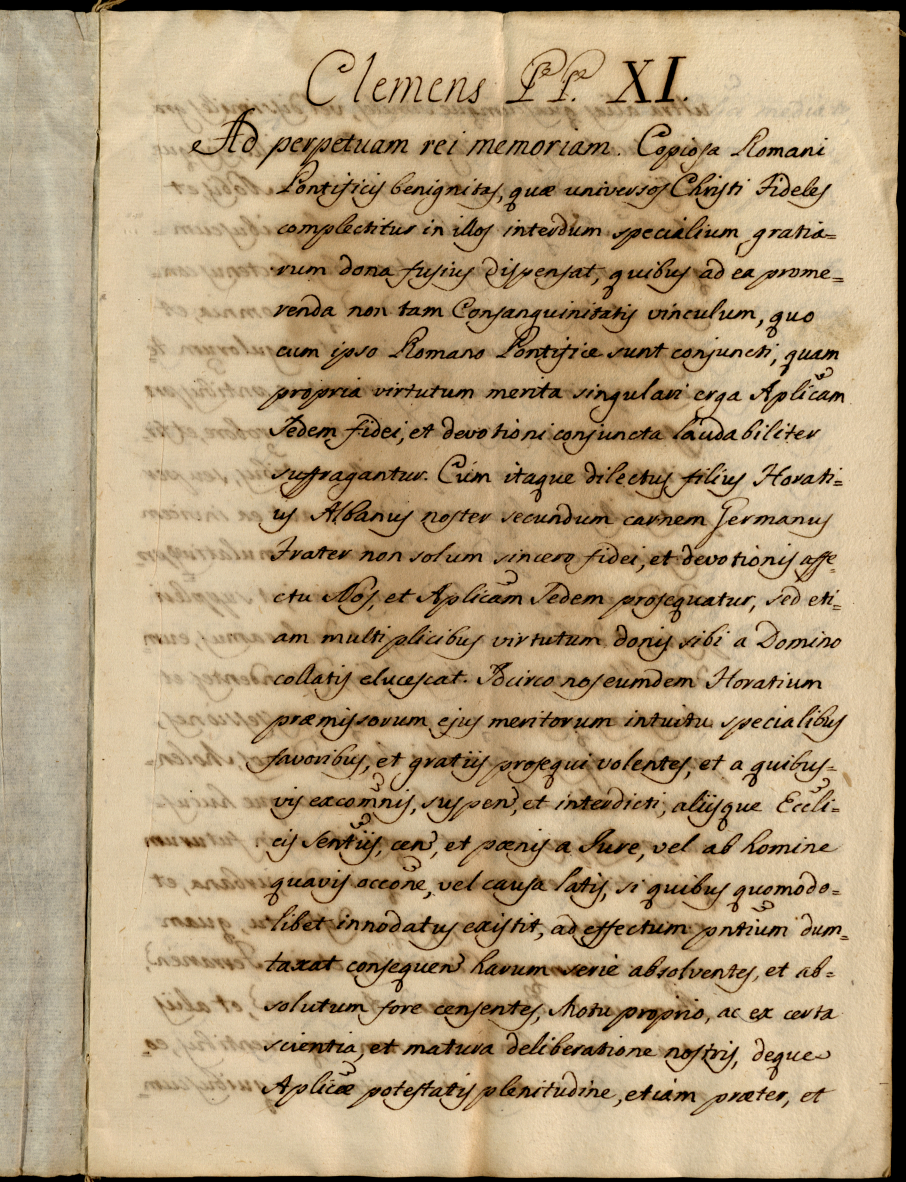 Clemens PP. XI.
Ad perpetuam rei memoriam. Copiosa Romani
Pontificis benignitas, quæ universos Christi Fideles
complectitur in illos interdum specialium gratia=
rum dona fusius dispensat, quibus ad ea prome=
renda non tam Consanguinitatis vinculum, quo
cum ipso Romano Pontifice sunt conjuncti, quam
propria virtutum merita singulari erga Aplicam
Sedem fidei, et devotioni conjuncta laudabiliter
suffragantur. Cum itaque dilectus filius Horati=
us Albanus noster secundum carnem Germanus
Frater non solum sincero fidei, et devotionis affe=
ctu Nos, et Aplicam Sedem prosequatur, sed eti=
am multiplicibus virtutum donis sibi a Domino
collatis elucescat. Idcirco nos eumdem Horatium
præmissorum ejus meritorum intuitu specialibus
favoribus, et gratiis prosequi volentes, et a quibus=
vis excomnis, suspen, et interdicti, aliisque Eccli=
cis Sentiis, cen, et pœnis a Jure, vel ab homine
quavis occone, vel causa latis, si quibus quomodo=
libet innodatus existit, ad effectum pntium dum=
taxat consequen harum serie absolventes, et ab=
solutum fore censentes, Motu proprio, ac ex certa
scientia, et matura deliberatione nostris, deque
Aplicæ potestatis plenitudine, etiam præter, et